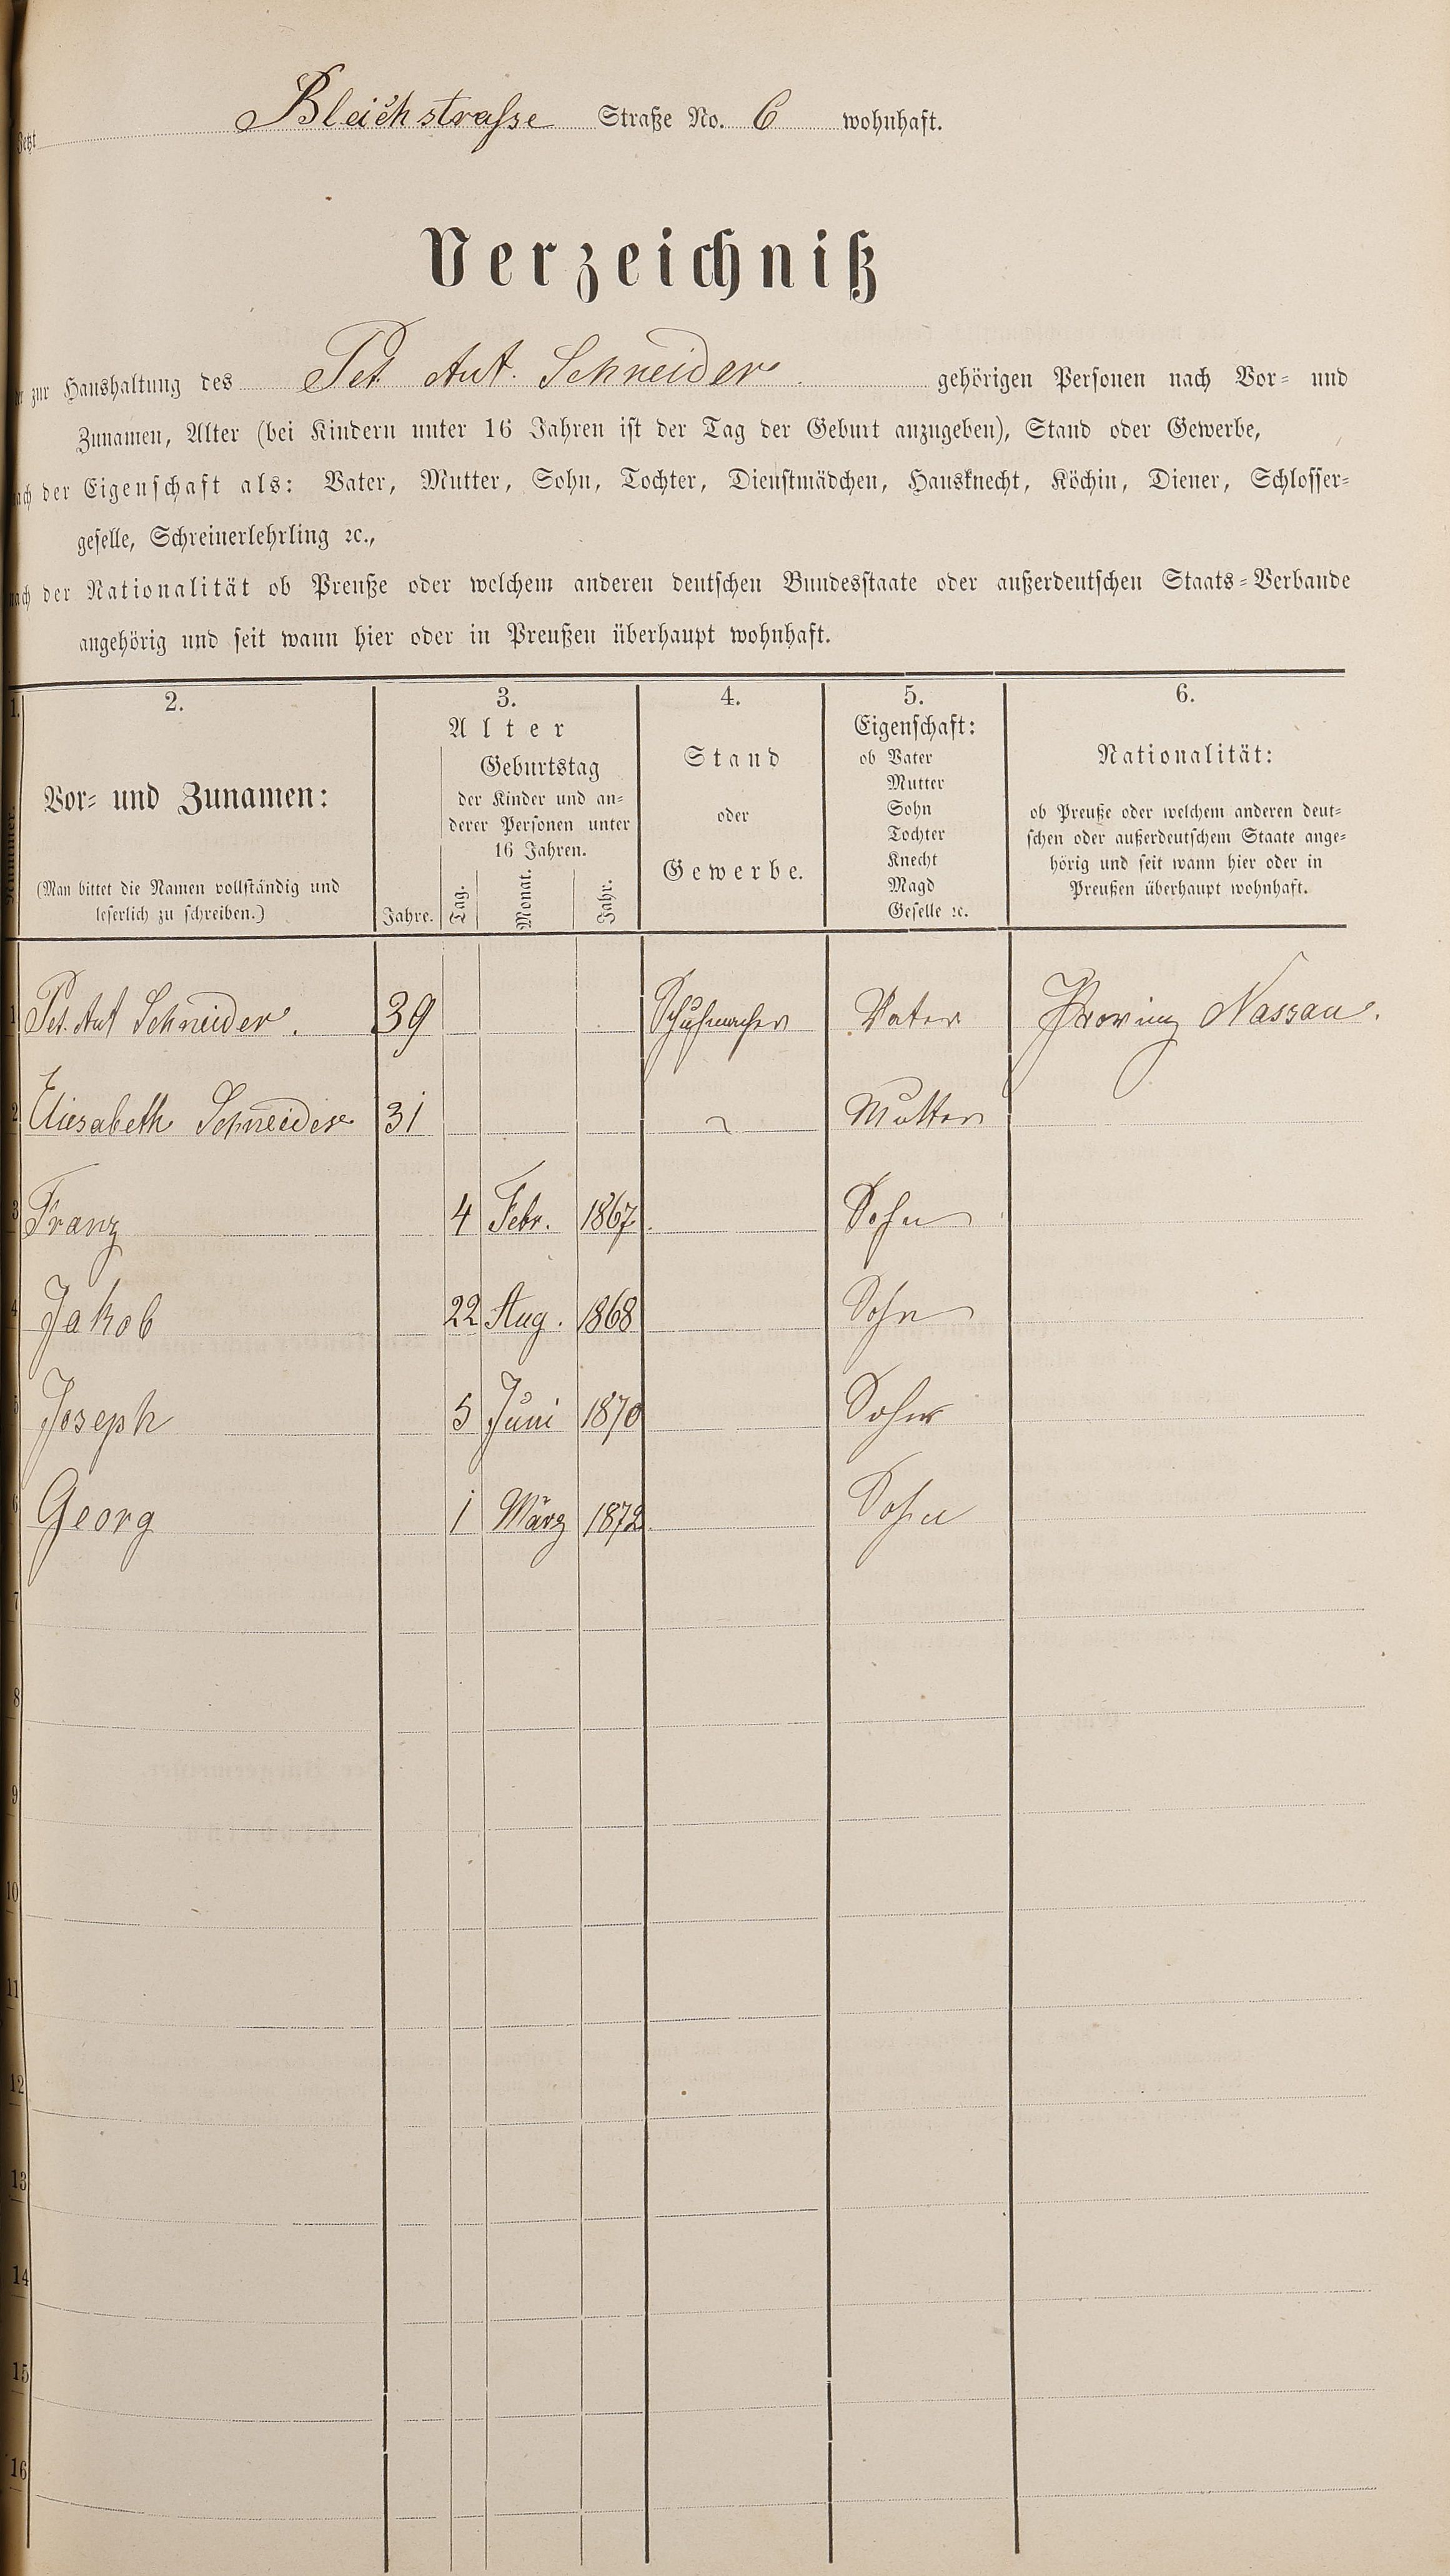 Jetzt Bleichstrasse Straße No. 6 wohnhaft.
Verzeichniß
der zur Haushaltung des Pet. Ant. Schneider. gehörigen Personen nach Vor- und
Zunamen, Alter (bei Kindern unter 16 Jahren ist der Tag der Geburt anzugeben), Stand oder Gewerbe,
nach der Eigenschaft als: Vater, Mutter, Sohn, Tochter, Dienstmädchen, Hausknecht, Köchin, Diener, Schlosser-
geselle, Schreinerlehrling ꝛc.,
nach der Nationalität ob Preuße oder welchem anderen deutschen Bundesstaate oder außerdeutschen Staats-Verbande
angehörig und seit wann hier oder in Preußen überhaupt wohnhaft.
1. 2. 3. 4. 5. 6.
Vor- und Zunamen:
(Man bittet die Namen vollständig und
leserlich zu schreiben.)
Alter
Geburtstag
der Kinder und an-
derer Personen unter
16 Jahren.
Jahre. Tag. Monat. Jahr.
Stand
oder
Gewerbe.
Eigenschaft:
ob Vater
Mutter
Sohn
Tochter
Knecht
Magd
Geselle ꝛc.
Nationalität:
ob Preuße oder welchem anderen deut-
schen oder außerdeutschem Staate ange-
hörig und seit wann hier oder in
Preußen überhaupt wohnhaft.
1 Pet. Ant Schneider. 39 Schuhmacher Vater Provinz Nassau.
2 Eliesabeth Schneider 31 Mutter
3 Franz 4 Febr. 1867. Sohn
4 Jakob 22 Aug. 1868 Sohn
5 Joseph 5 Juni 1870 Sohn
6 Georg 1 März 1872. Sohn
7
8
9
10
11
12
13
14
15
16